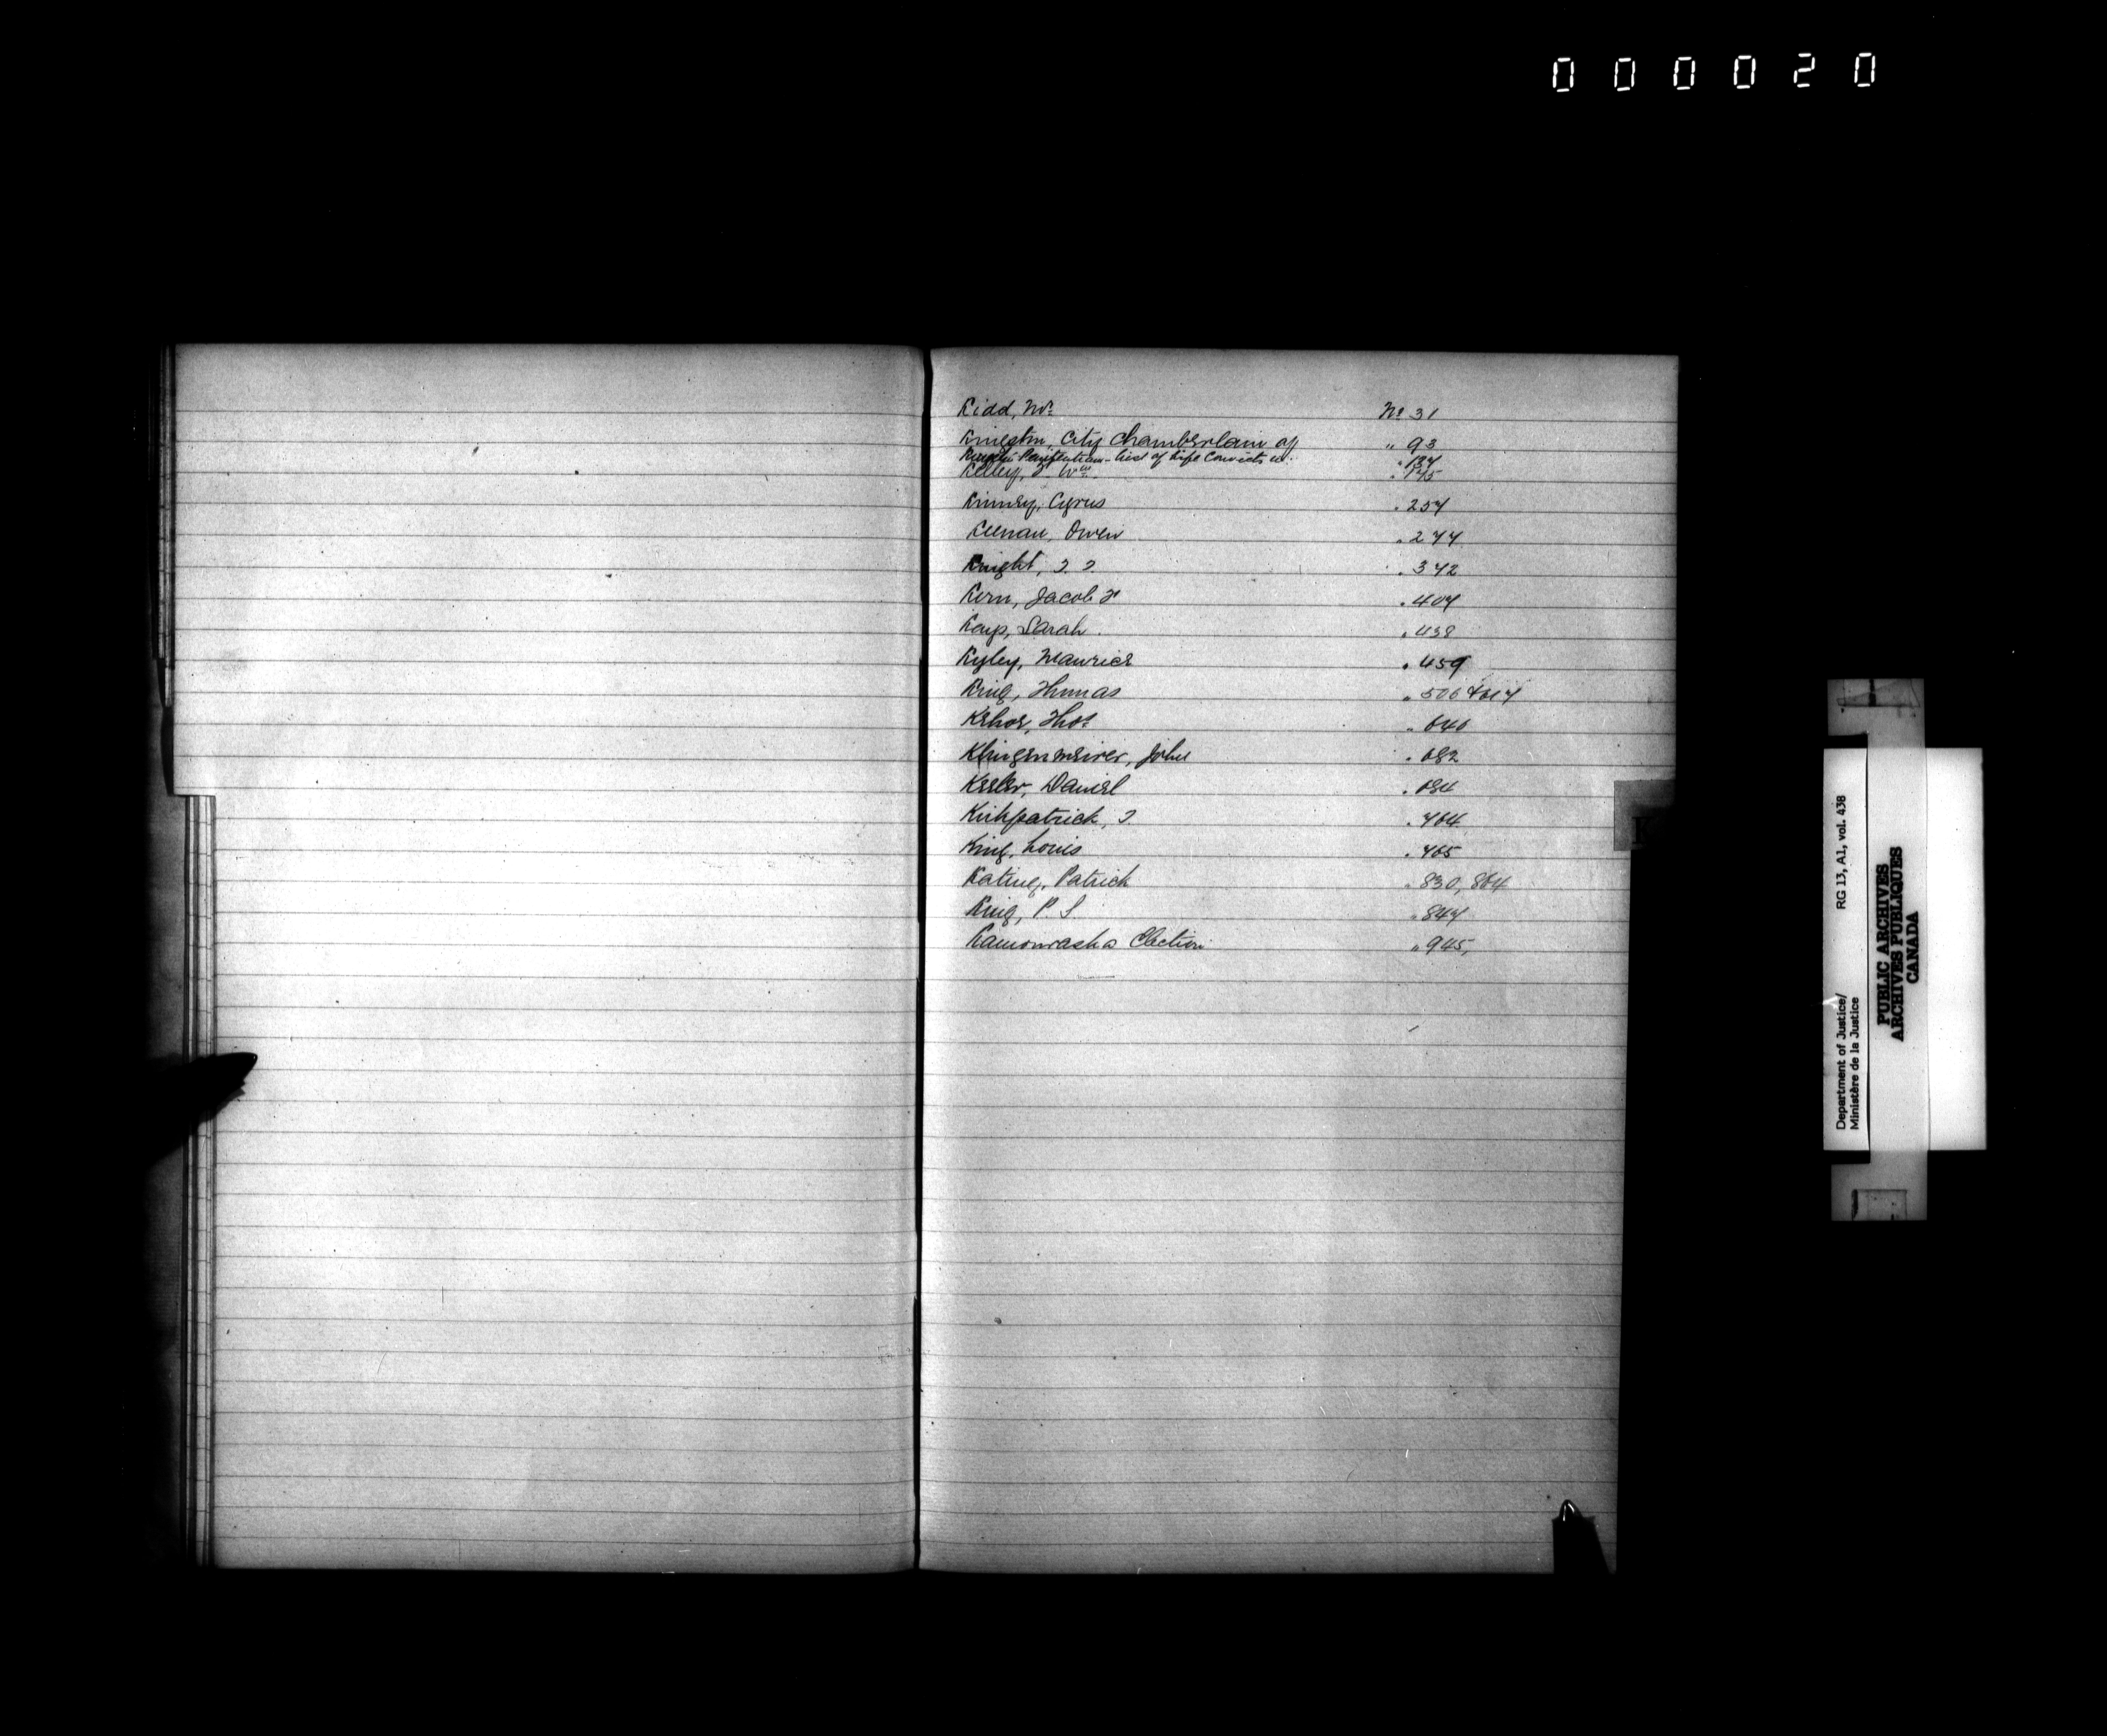 000020
Kidd, Mr. No 31
Kingston, City Chamberlain of " 93
Kingston Penitentiary - List of Life Convicts in. " 134
Kelley, F. Wm. " 145
Kinney, Cyrus " 257
Keenan, Owen " 277
Knight, J. J. " 372
Kern, Jacob F " 407
Kays, Sarah. " 438
Kyley, Maurice " 459
King, Thomas " 506 & 617
Kehoe, Thos " 640
Klingenmeirer, John " 682
Keeler, Daniel " 684
Kirkpatrick, J. " 764
King, Louis " 765
Kating, Patrick " 830, 864
King, P. S. " 847
Kamouraska Election " 945,
K
Department of Justice/ RG 13, A1, vol. 438
Ministère de la Justice
PUBLIC ARCHIVES
ARCHIVES PUBLIQUES
CANADA